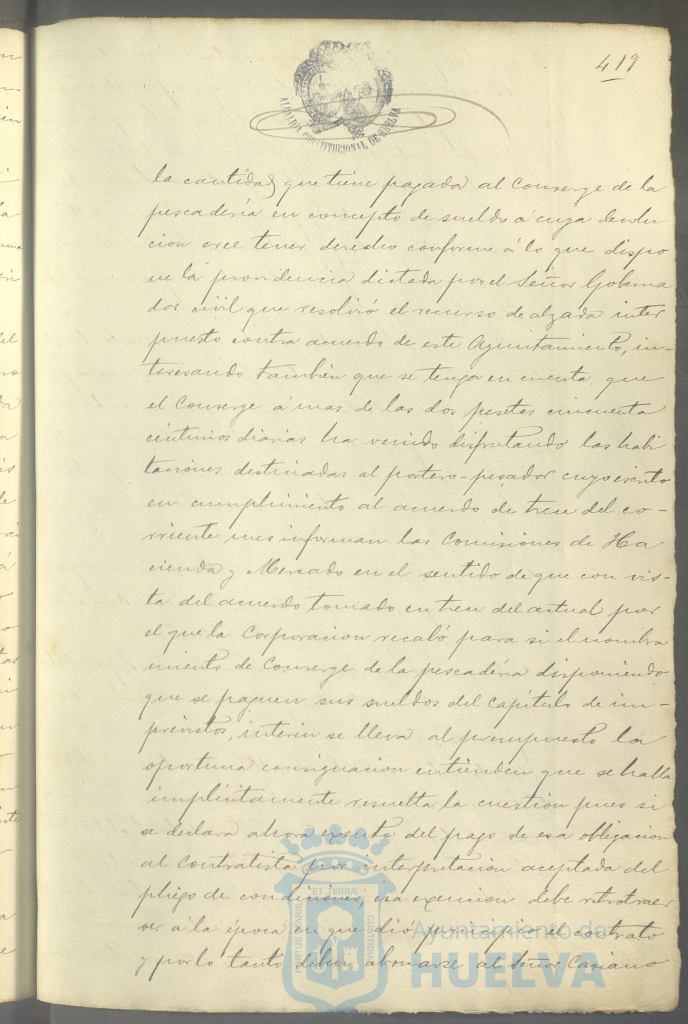 419
ALCALDIA CONSTITUCIONAL DE HUELVA
la cantidad que tiene pagada al Conserge de la
pescadería en concepto de sueldo á cuya devolu
cion cree tener derecho conforme á lo que dispo
ne la providencia dictada por el Señor Goberna
dor civil que resolvió el recurso de alzada inter
puesto contra acuerdo de este Ayuntamiento, in-
teresando tambien que se tenga en cuenta que
el Conserge á mas de las dos pesetas cincuenta
céntimos diarias ha venido disfrutando las habi
taciones destinadas al portero-pesador cuyo escrito
en cumplimiento al acuerdo de trece del co-
rriente informan las Comisiones de Ha
cienda y Mercado en el sentido de que con vis-
ta del acuerdo tomado en trece del actual por
el que la Corporacion recabó para si el nombra
miento de Conserge de la pescadería disponiendo
que se paguen sus sueldos del capítulo de im-
previstos, interin se lleva al presupuesto la
oportuna consignacion entienden que se halla
implícitamente resuelta la cuestion pues si
se declara ahora exento del pago de esa obligacion
al Contratista por interpretacion aceptada del
pliego de condiciones, esa exencion debe retrotraer
se á la época en que dió principio el contrato
y por lo tanto deben abonarse al Señor Casiano
PORTUS MARIS ET TERRAE CUSTODIA
Ayuntamiento de
HUELVA